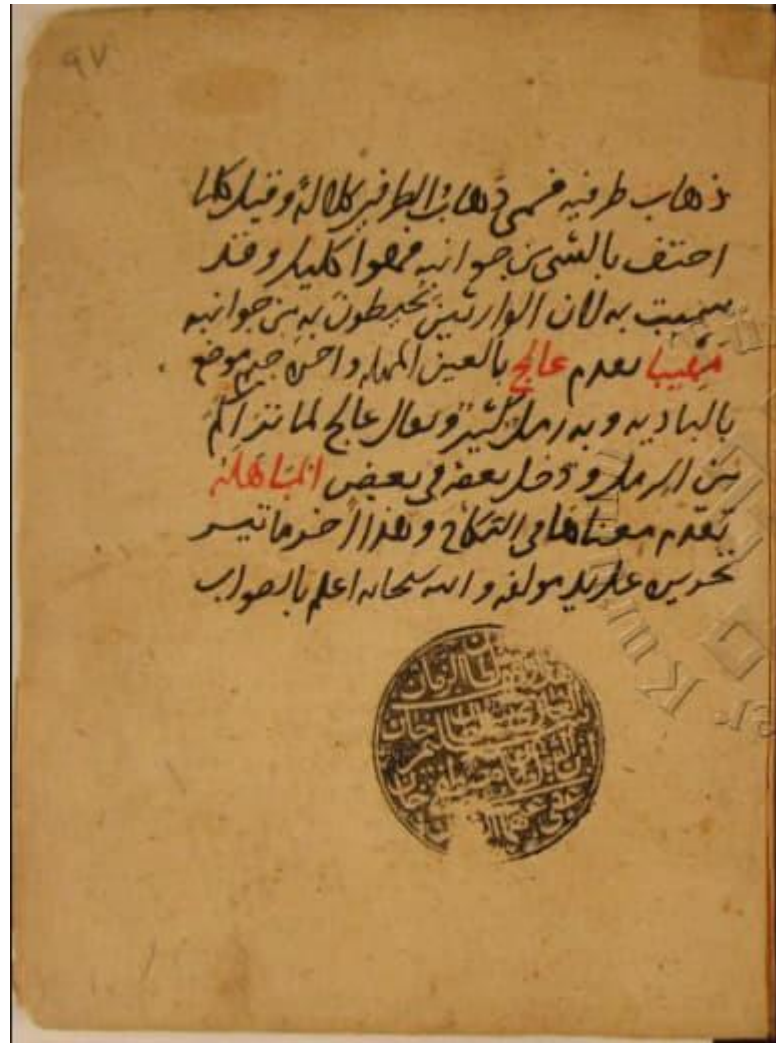 ٩٧
ذهاب طرفيه فسمى ذهاب الطرفين كلالة وقيل كلما
احتف بالشى من جوانبه فهو اكليل وقد
سميت به لان الوارثين يحيطون به من جوانبه
مهيبا تقدم عالج بالعين المهمله واخره جيم موضع
بالباديه وبه رمل كثير ويقال عالج لما تراكم
من الرمل ودخل بعضه في بعض المباهله
تقدم معناها في النكاح وهذا اخر ما تيسر
تحريره على يد مولفه والله سبحانه اعلم بالصواب